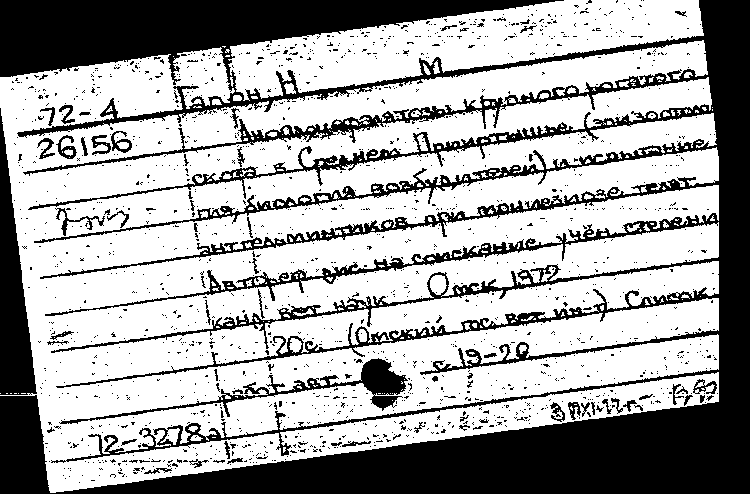 72-4 Гапон, Н М
26156 Аноплоцефалятозы крупного рогатого
скота в Среднем Прииртышье (эпизоотоло
гия, биология возбудителей) и испытание
антгельминтиков при мониезиозе телят.
Автореф дис. на соискание учён степени
канд вет наук. Омск, 1972
20с. (Омский гос. вет. ин-т) Список
работ авт.: с. 19-20
72-3278а